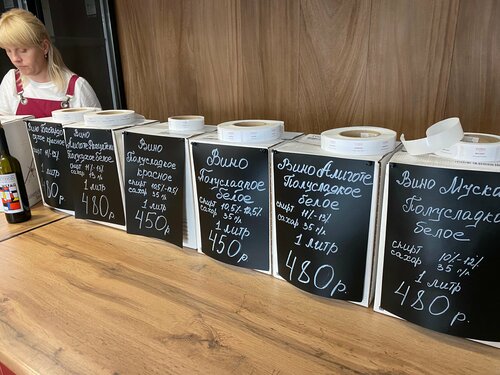 Вино
сухое
красное
спирт 11%-13%
1 литр
Вино
Алиготе
белое
спирт 11%-13%
1 литр
480р.
Вино
Полусладкое
красное
спирт 10,5%-12,5%
сахар 35 г/л
1 литр
450р.
Вино
Полусладкое
белое
спирт 10,5%-12,5%
сахар 35 г/л
1 литр
450р.
Вино Алиготе
Полусладкое
белое
спирт 11%-13%
сахар 35 г/л
1 литр
480р.
Вино
Полусладк
белое
спирт 10%-12%
сахар 35 г/л
1 литр
480р.